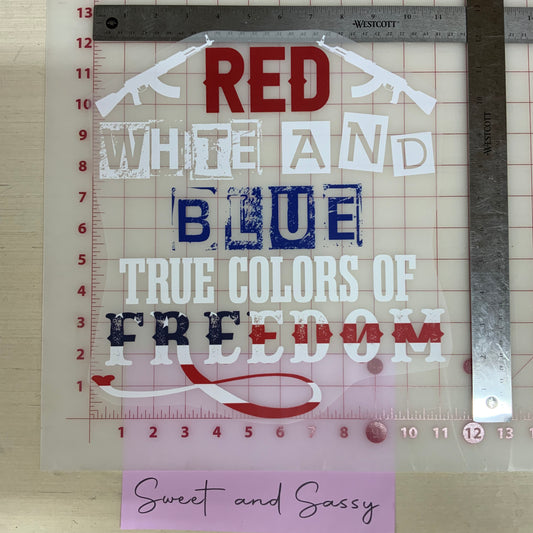 WESTCOTT
WESTCOTT
RED
WHITE AND
BLUE
TRUE COLORS OF
FREEDOM
13
12
11
10
9
8
7
6
5
4
3
2
1
1 2 3 4 5 6 7 8 9 10 11 12 13
Sweet and Sassy